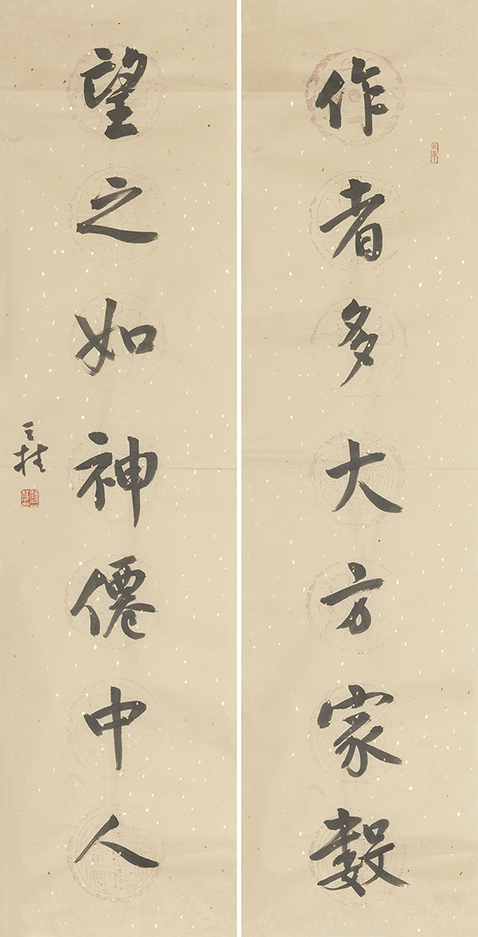 作者多大方家數
望之如神僊中人